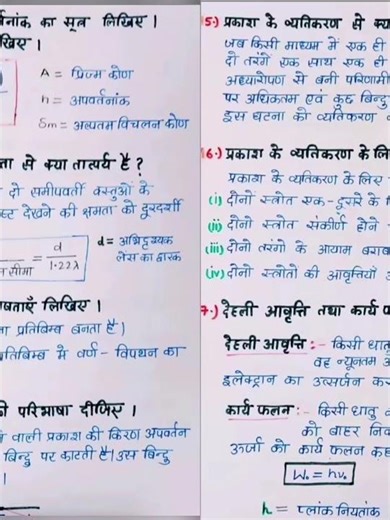 र्तनांक का सूत्र लिखिए ।
खिए ।
A = प्रिज्म कोण
n = अपवर्तनांक
δm = अल्पतम विचलन कोण
ता से क्या तात्पर्य है ?
दो समीपवर्ती वस्तुओं के
देखने की क्षमता को दूरदर्शी
= d / 1.22λ
सीमा
d = अभिदृश्यक लेंस का द्वारक
षताएँ लिखिए ।
प्रतिबिम्ब बनता है।
तिबिम्ब मे वर्ण - विपथन का
की परिभाषा दीजिए ।
वाली प्रकाश की किरण अपवर्तन
बिन्दु पर काटती है। उस बिन्दु
5:) प्रकाश के व्यतिकरण से क्या
जब किसी माध्यम में एक ही
दो तरंगे एक साथ एक ही
अध्यारोपण से बनी परिणामी
पर अधिकतम एवं कुछ बिन्दु
इस घटना को व्यतिकरण
6:) प्रकाश के व्यतिकरण के लि
प्रकाश के व्यतिकरण के लिए
(i) दोनों स्त्रोत एक - दूसरे के
(ii) दोनो स्त्रोत संकीर्ण होने
(iii) दोनो तरंगो के आयाम बराब
(iv) दोनो स्त्रोतो की आवृत्तियाँ
7:) देहली आवृत्ति तथा कार्य फ
देहली आवृत्ति :- किसी धातु
वह न्यूनतम
इलेक्ट्रान का उत्सर्जन कर
कार्य फलन :- किसी धातु
को बाहर निक
ऊर्जा को कार्य फलन कह
W₀ = hν₀
h = प्लांक नियतांक